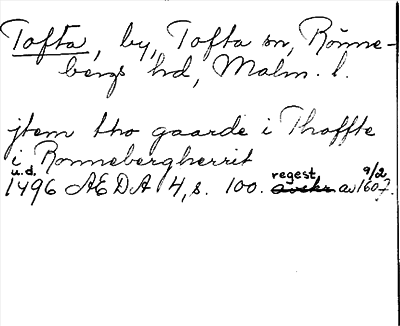 Tofta, by, Tofta sn, Rönne-
bergs hd, Malm. l.
jtem tho gaarde i Thoffte
i Ronnebergherrit
u.d. regest 9/2
1496 ÆDA 4, s. 100. av 1607.